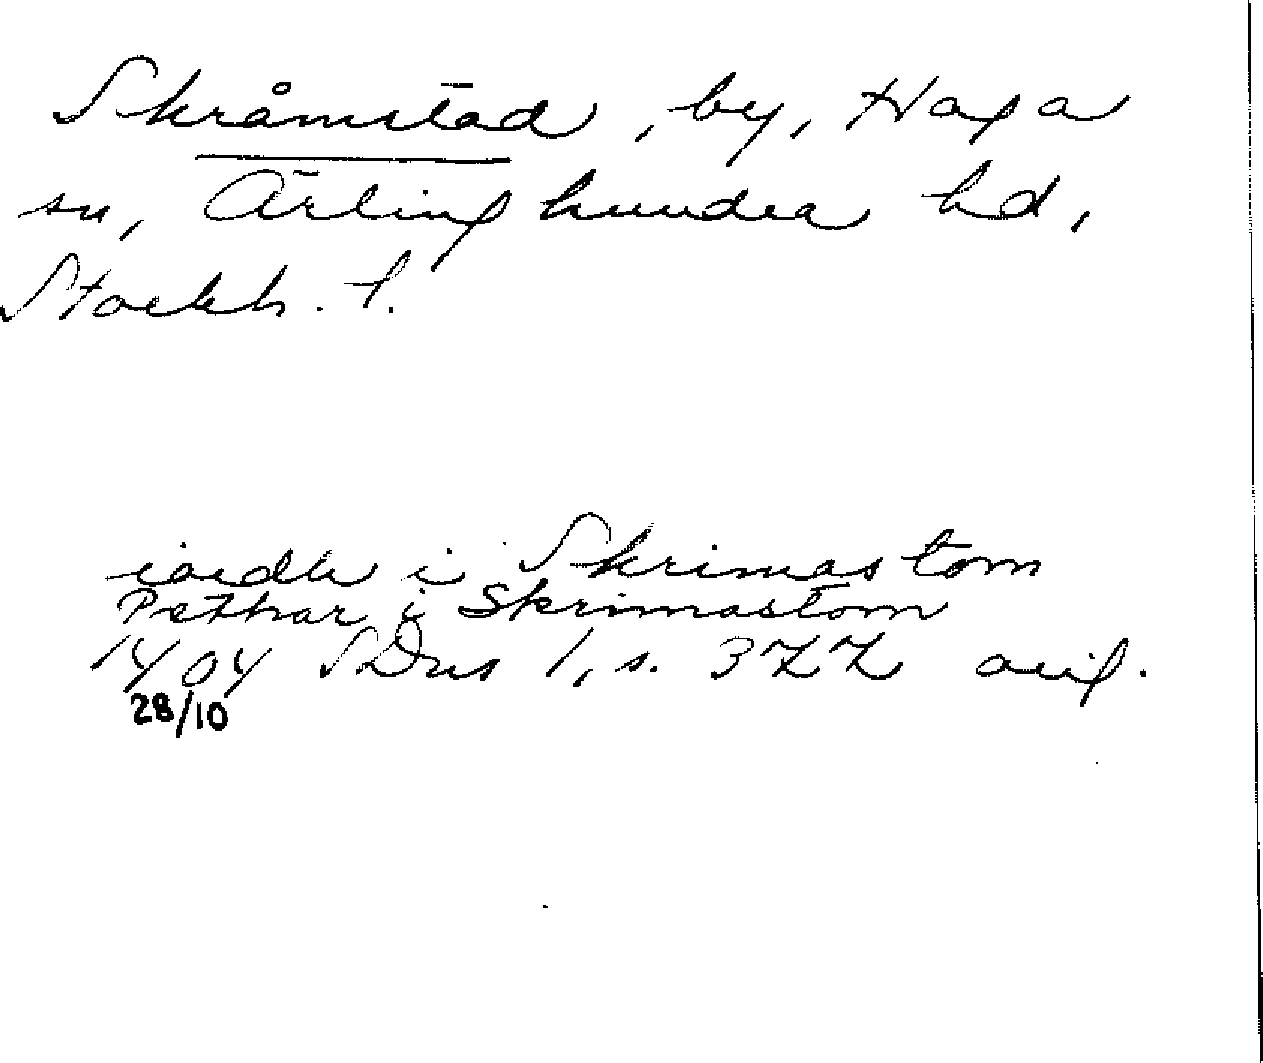 Skråmstad, by, Haga
sn, Ärlinghundra hd,
Stockh. l.
iordh i Skrimastom
Pæthar i Skrimastom
1404 SDns 1, s. 322 orig.
28/10